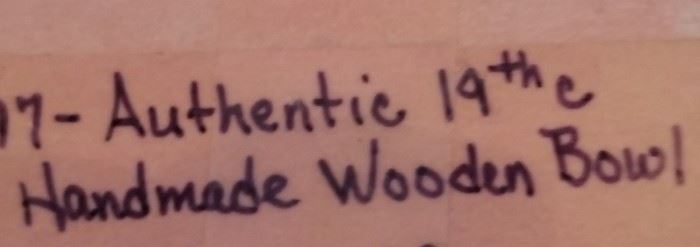 17- Authentic 19th c
Handmade Wooden Bowl